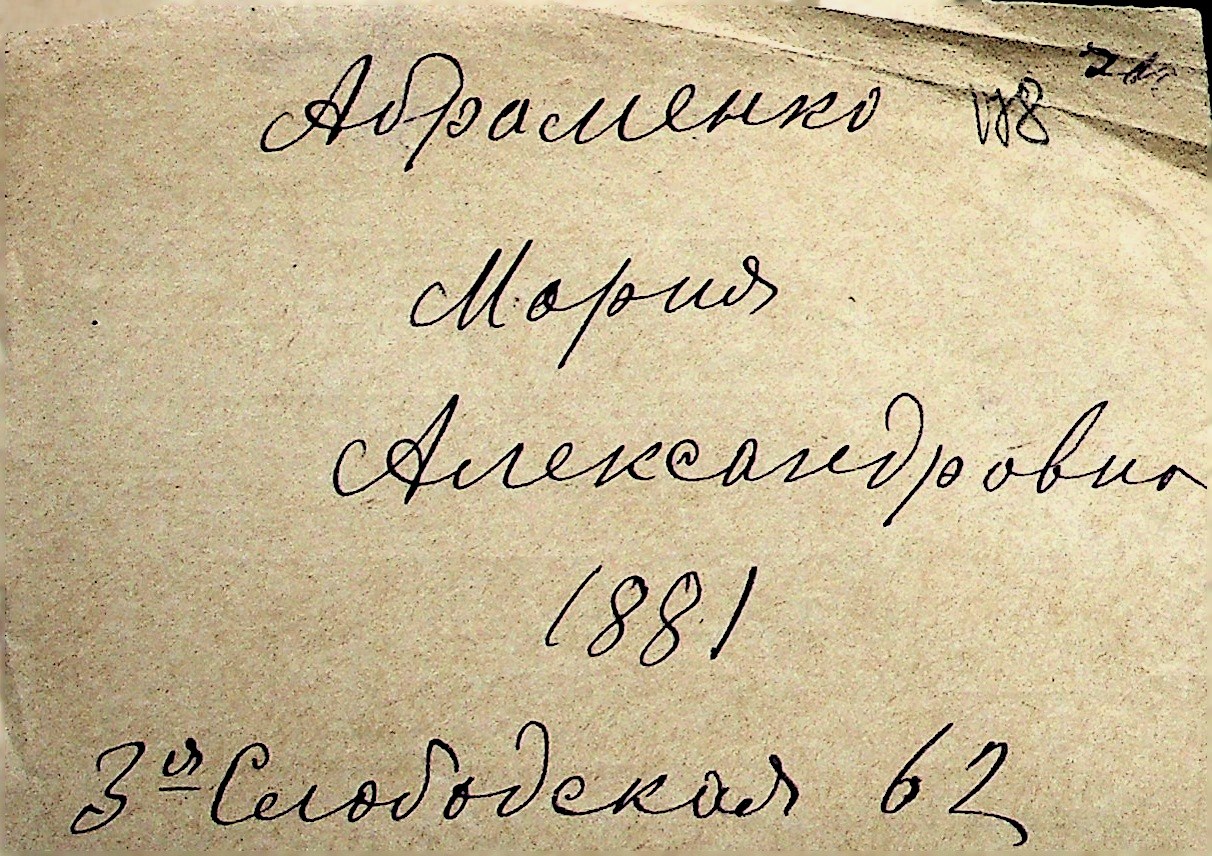 Абраменко
Мария
Александровна
1881
3я Слободская 62